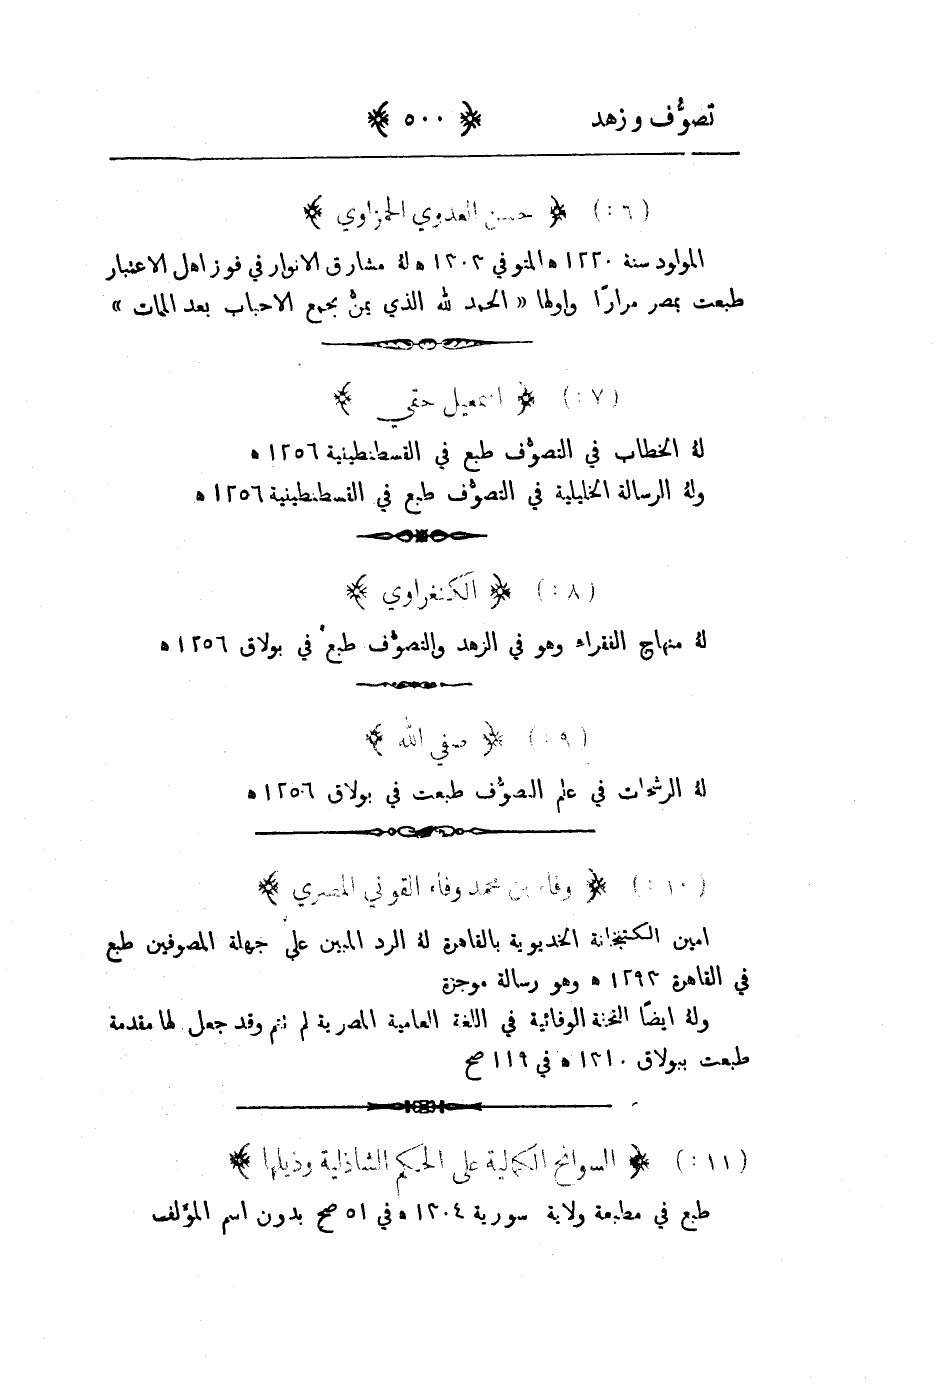 تصوُّف وزهد ﴿ ٥٠٠ ﴾
(٦:) ﴿ حسن العدوي الحمزاوي ﴾
المولود سنة ١٢٢٠ ه المتوفي ١٣٠٣ ه لهُ مشارق الانوار في فوز اهل الاعتبار
طبعت بمصر مرارًا واولها « الحمد لله الذي يمنُّ بجمع الاحباب بعد المات »
(٧:) ﴿ اسمعيل حقي ﴾
لهُ الخطاب في التصوُّف طبع في القسطنطينية ١٢٥٦ ه
ولهُ الرسالة الخليلية في التصوُّف طبع في القسطنطينية ١٢٥٦ ه
(٨:) ﴿ الكنغراوي ﴾
لهُ منهاج الفقراء وهو في الزهد والتصوُّف طبع في بولاق ١٢٥٦ ه
(٩:) ﴿ صفي الله ﴾
لهُ الرشحات في علم التصوُّف طبعت في بولاق ١٢٥٦ ه
(١٠:) ﴿ وفاء بن محمد وفاء القوني المصري ﴾
امين الكتبخانة الخديوية بالقاهرة لهُ الرد المبين على جهلة المصوفين طبع
في القاهرة ١٢٩٣ ه وهو رسالة موجزة
ولهُ ايضًا التحفة الوفائية في اللغة العامية المصرية لم تتم وقد جعل لها مقدمة
طبعت ببولاق ١٣١٠ ه في ١١٩ صح
(١١:) ﴿ السوانح الكمالية على الحكم الشاذلية وذيلها ﴾
طبع في مطبعة ولاية سورية ١٣٠٤ ه في ٥١ صح بدون اسم المؤلف